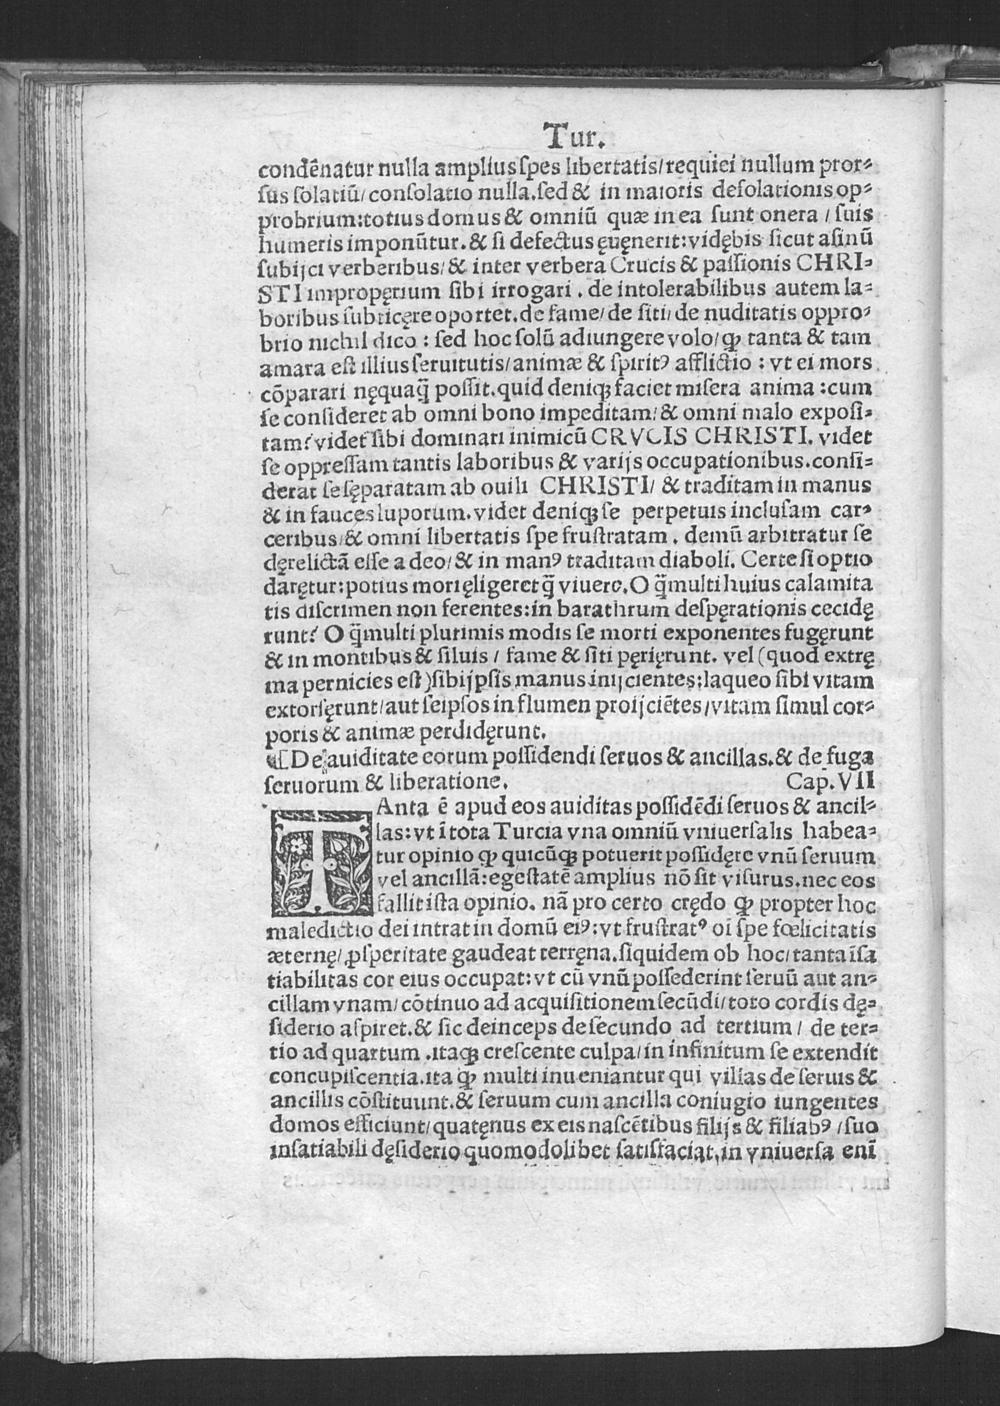 Tur.
condēnatur nulla amplius ſpes libertatis/requiei nullum pror⸗
ſus ſolatiū/conſolatio nulla.ſed & in maioris deſolationis op⸗
probrium:totius domus & omniū quæ in ea ſunt onera / ſuis
humeris imponūtur.& ſi defectus ęuęnerit:vidębis ſicut aſinū
ſubijci verberibus/& inter verbera Crucis & paſſionis CHRI⸗
STI impropęrium ſibi irrogari . de intolerabilibus autem la⸗
boribus ſubticęre oportet.de fame/de ſiti/de nuditatis oppro⸗
brio nichil dico : ſed hoc ſolū adiungere volo/ꝙ tanta & tam
amara eſt illius ſeruitutis/animæ & ſpiritꝰ afflictio : vt ei mors
cōparari nęquaq̃ poſſit.quid deniqꝫ faciet miſera anima :cum
ſe conſideret ab omni bono impeditam/& omni malo expoſi⸗
tam?videt ſibi dominari inimicū CRVCIS CHRISTI. videt
ſe oppreſſam tantis laboribus & varijs occupationibus.conſi⸗
derat ſe ſęparatam ab ouili CHRISTI/ & traditam in manus
& in fauces luporum.videt deniqꝫ ſe perpetuis incluſam car⸗
ceribus/& omni libertatis ſpe fruſtratam . demū arbitratur ſe
dęrelictā eſſe a deo/& in manꝰ traditam diaboli. Certe ſi optio
darętur:potius mori ęligeret q̃ viuere.O q̃ multi huius calamita
tis diſcrimen non ferentes:in barathrum deſpęrationis cecidę
runt? O q̃ multi plurimis modis ſe morti exponentes fugęrunt
& in montibus & ſiluis / fame & ſiti pęrięrunt. vel (quod extrę
ma pernicies eſt)ſibijpſis manus inijcientes:laqueo ſibi vitam
extorſęrunt/aut ſeipſos in flumen proijciētes/vitam ſimul cor⸗
poris & animæ perdidęrunt.
¶De auiditate eorum poſſidendi ſeruos & ancillas.& de fuga
ſeruorum & liberatione. Cap.VII
TAnta ē apud eos auiditas poſſidēdi ſeruos & ancil⸗
las:vt ī tota Turcia vna omniū vniuerſalis habea⸗
tur opinio ꝙ quicūqꝫ potuerit poſſidęre vnū ſeruum
vel ancillā:egeſtatē amplius nō ſit viſurus.nec eos
fallit iſta opinio. nā pro certo crędo ꝙ propter hoc
maledictio dei intrat in domū eiꝰ:vt fruſtratꝰ oī ſpe fœlicitatis
æternę/ꝓſperitate gaudeat terręna.ſiquidem ob hoc/tanta īſa
tiabilitas cor eius occupat:vt cū vnū poſſederint ſeruū aut an⸗
cillam vnam/cōtinuo ad acquiſitionem ſecūdi/toto cordis dę⸗
ſiderio aſpiret.& ſic deinceps de ſecundo ad tertium / de ter⸗
tio ad quartum .itaqꝫ creſcente culpa/in infinitum ſe extendit
concupiſcentia.ita ꝙ multi inueniantur qui villas de ſeruis &
ancillis cōſtituunt.& ſeruum cum ancilla coniugio iungentes
domos efficiunt/quatęnus ex eis naſcētibus filijs & filiabꝰ /ſuo
inſatiabili dęſiderio quomodolibet ſatiſfaciat.in vniuerſa enī